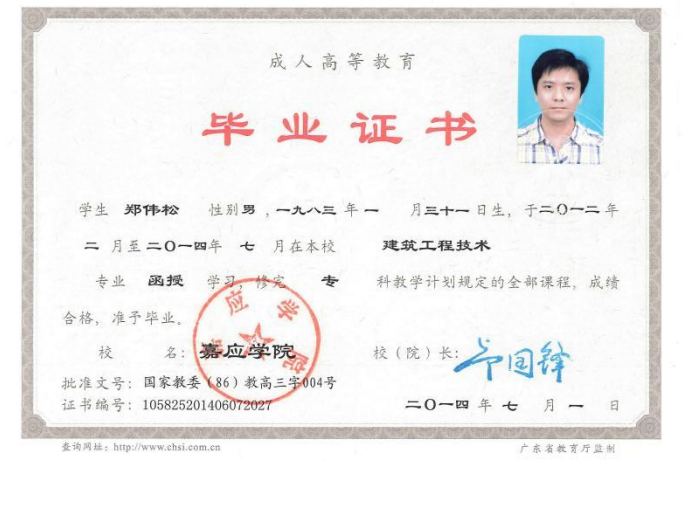 成人高等教育
毕业证书
学生 郑伟松 性别男,一九八三年一 月三十一日生,于二〇一二年
二 月至二〇一四年 七 月在本校 建筑工程技术
专业 函授 学习,修完 专 科教学计划规定的全部课程,成绩
合格,准予毕业。
校 名: 嘉应学院 校(院)长:
批准文号: 国家教委(86)教高三字004号
证书编号: 105825201406072027 二〇一四 年 七 月 一 日
查询网址: http://www.chsi.com.cn 广东省教育厅监制
嘉应学院